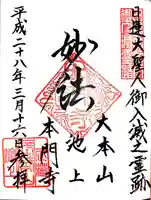 日蓮大聖人御入滅之霊跡
大本山
妙法
池上
本門寺
平成二十八年三月十六日参拝